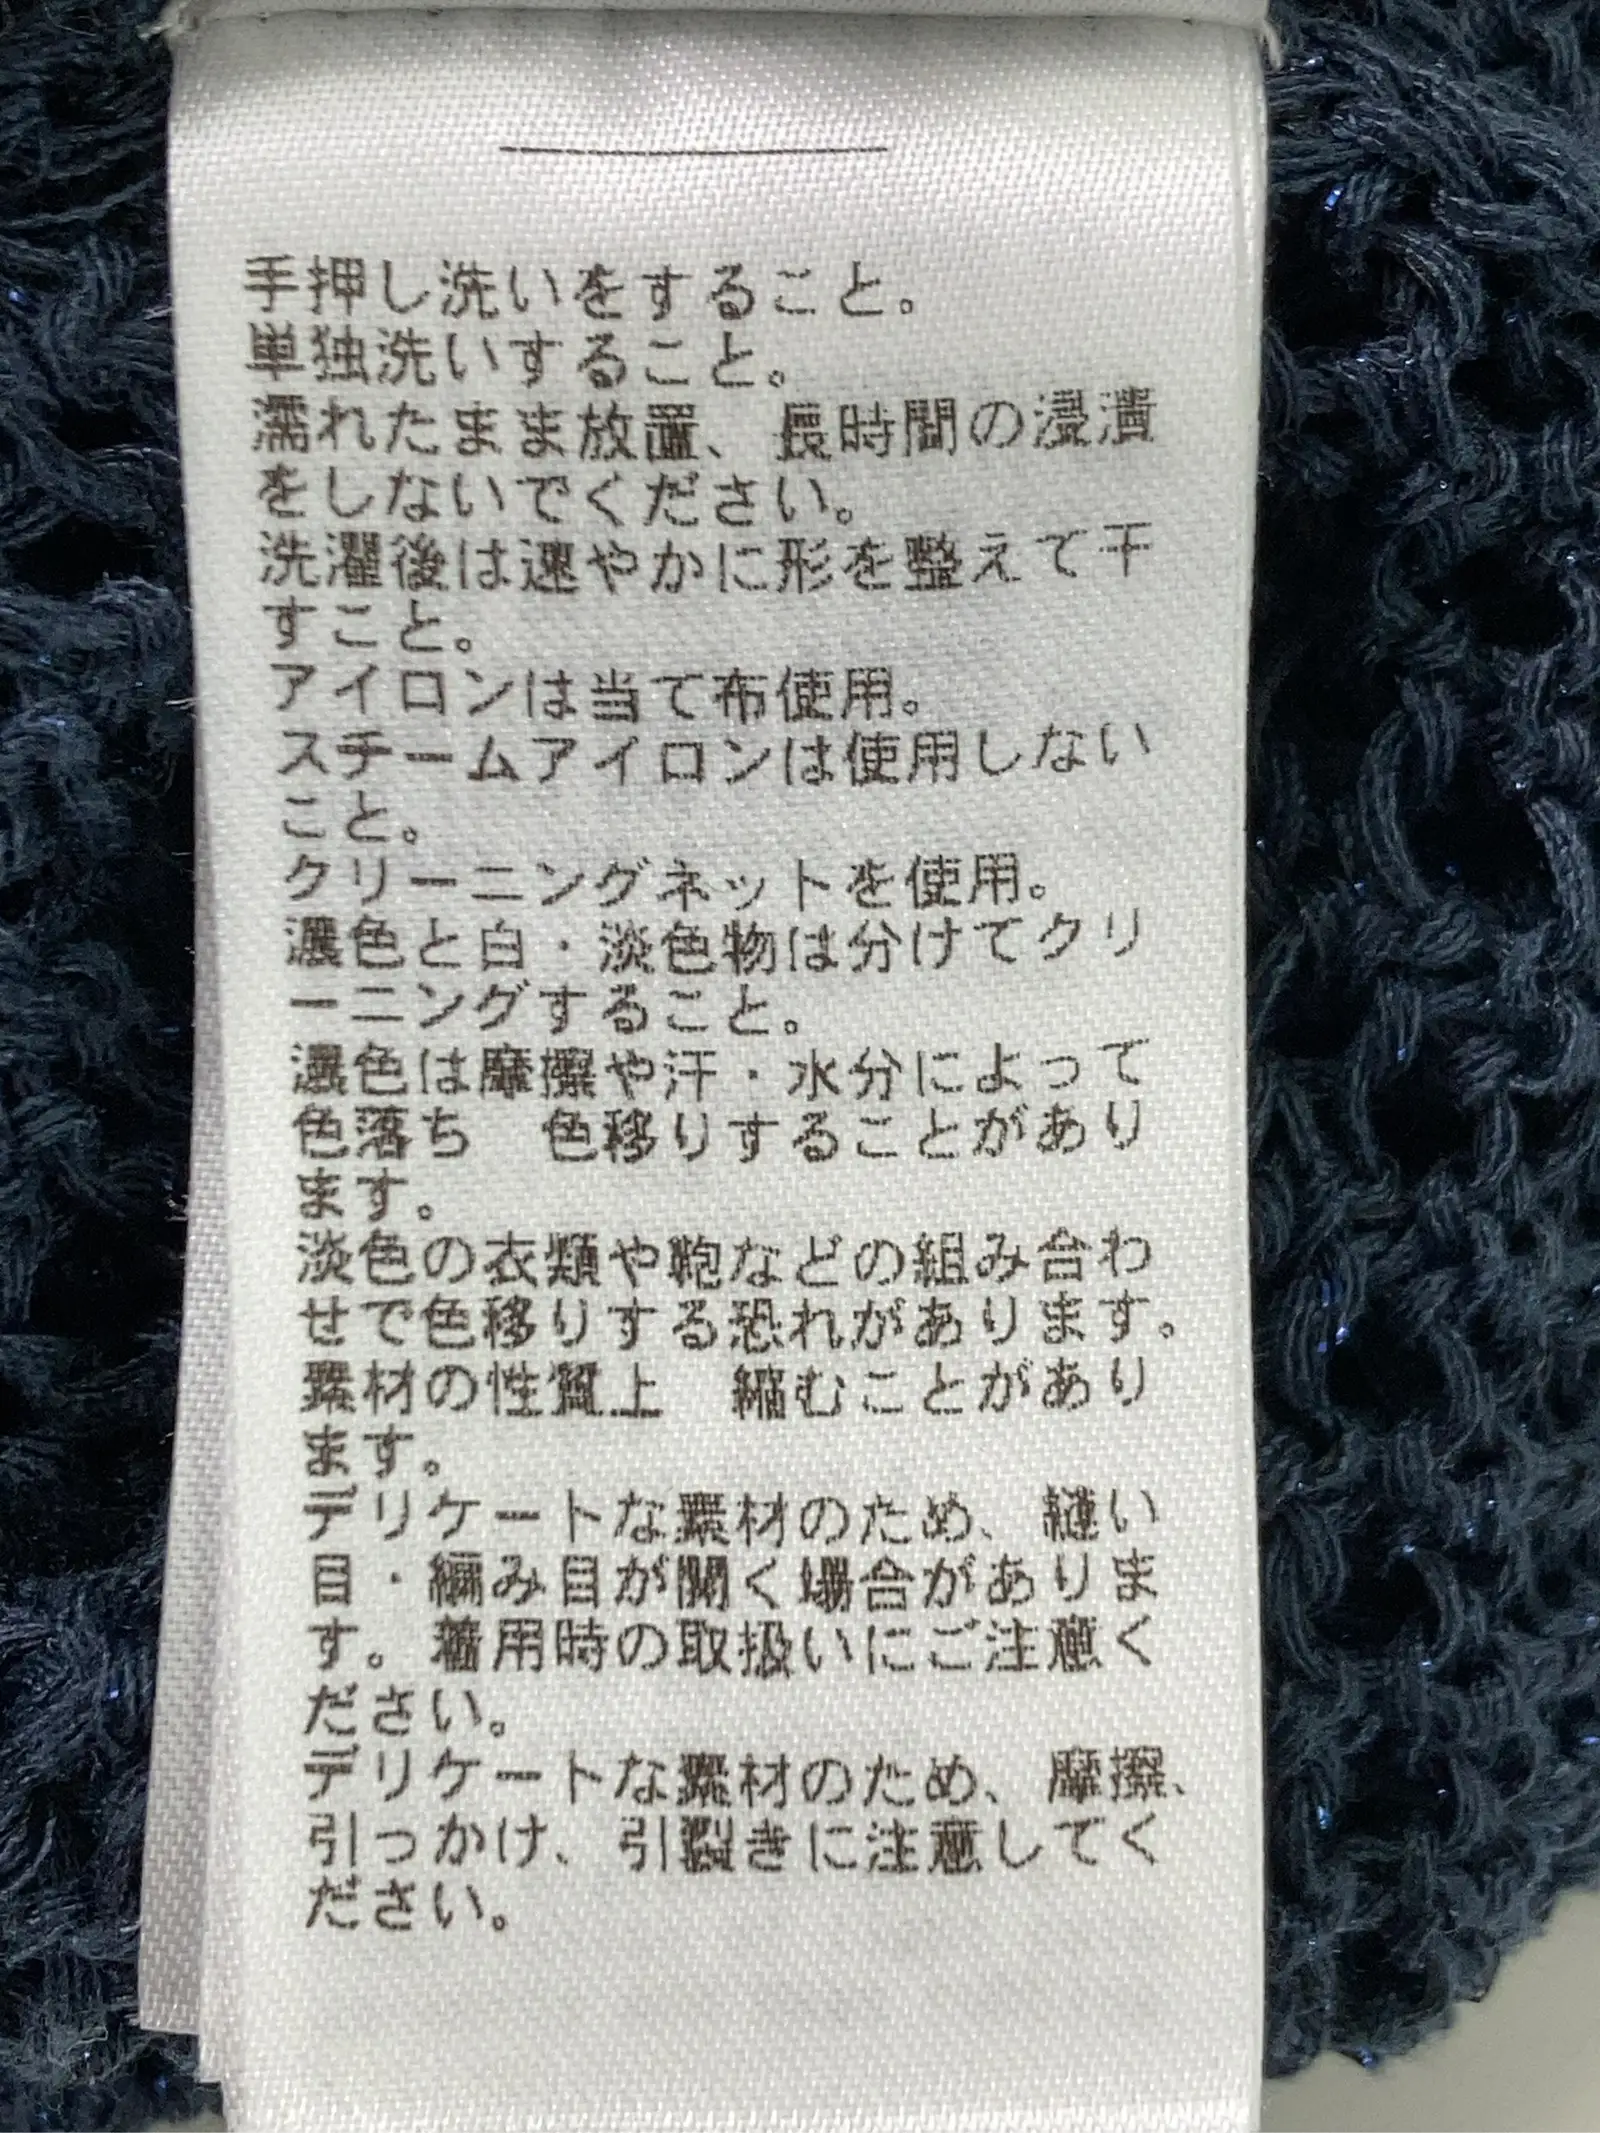 手押し洗いをすること。
単独洗いすること。
濡れたまま放置、長時間の浸漬
をしないでください。
洗濯後は速やかに形を整えて干
すこと。
アイロンは当て布使用。
スチームアイロンは使用しない
こと。
クリーニングネットを使用。
濃色と白・淡色物は分けてクリ
ーニングすること。
濃色は摩擦や汗・水分によって
色落ち　色移りすることがあり
ます。
淡色の衣類や鞄などの組み合わ
せで色移りする恐れがあります。
素材の性質上　縮むことがあり
ます。
デリケートな素材のため、縫い
目・編み目が開く場合がありま
す。着用時の取扱いにご注意く
ださい。
デリケートな素材のため、摩擦、
引っかけ、引裂きに注意してく
ださい。